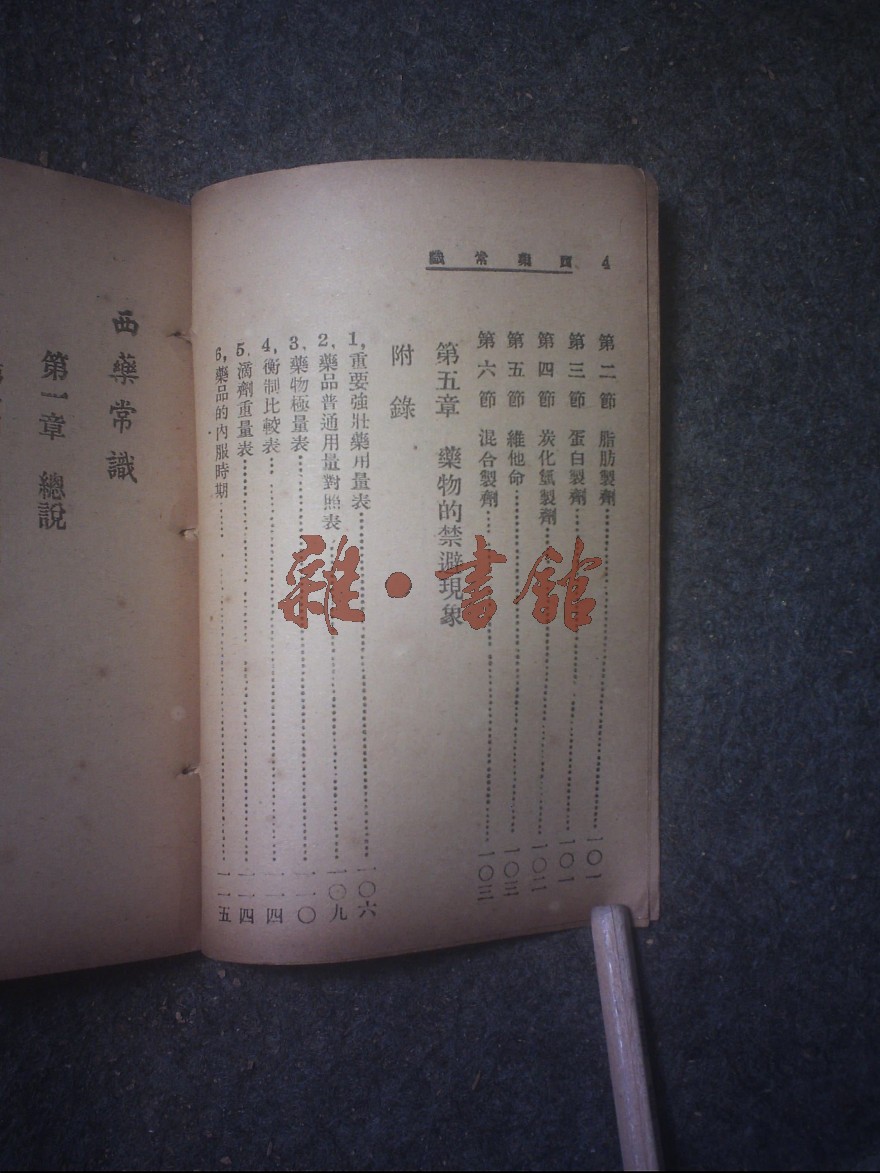 4 西藥常識
第二節 脂肪製劑……一〇一
第三節 蛋白製劑……一〇一
第四節 炭化氫製劑……一〇二
第五節 維他命……一〇三
第六節 混合製劑……一〇三
第五章 藥物的禁避現象
附錄
1,重要強壯藥用量表……一〇六
2,藥品普通用量對照表……一〇九
3,藥物極量表……一一〇
4,衡制比較表……一一四
5,滴劑重量表……一一四
6,藥品的內服時期……一一五
西藥常識
第一章 總說
雜·書館